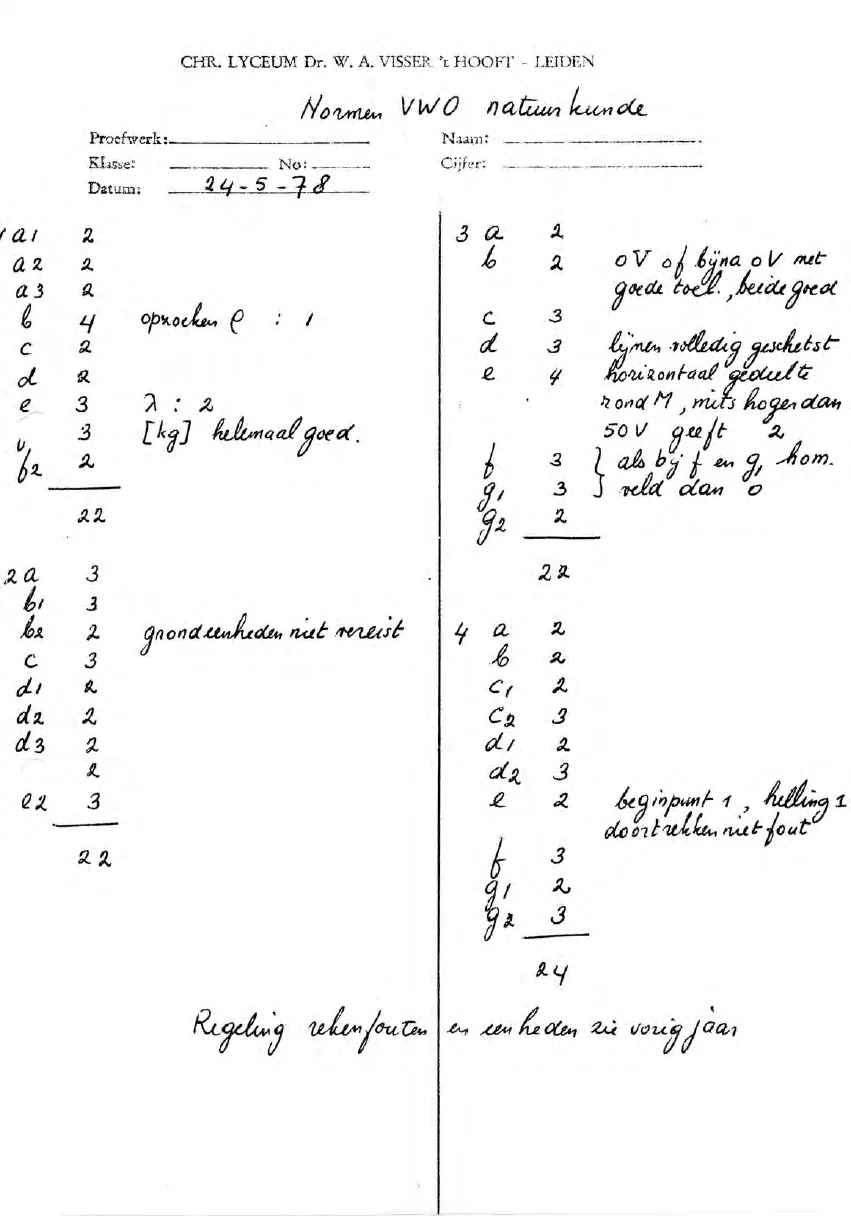 CHR. LYCEUM Dr. W. A. VISSER 't HOOFT - LEIDEN
Normen VWO natuurkunde
Proefwerk:
Naam:
Klasse: No:
Cijfer:
Datum: 24-5-78
1 a1 2
a2 2
a3 2
b 4 opzoeken ρ : 1
c 2
d 2
e 3 λ : 2
3 [kg] helemaal goed.
f2 2
22
2 a 3
b1 3
b2 2 grondeenheden niet vereist
c 3
d1 2
d2 2
d3 2
2
e2 3
22
3 a 2
b 2 0V of bijna 0V met
goede toel., beide goed
c 3
d 3 lijnen volledig geschetst
e 4 horizontaal gedeelte
rond M, mits hoger dan
50V geeft 2
f 3 } als bij f en g1 hom.
g1 3 } veld dan 0
g2 2
22
4 a 2
b 2
c1 2
c2 3
d1 2
d2 3
e 2 beginpunt 1, helling 1
doortrekken niet fout
f 3
g1 2
g2 3
24
Regeling rekenfouten en eenheden zie vorig jaar